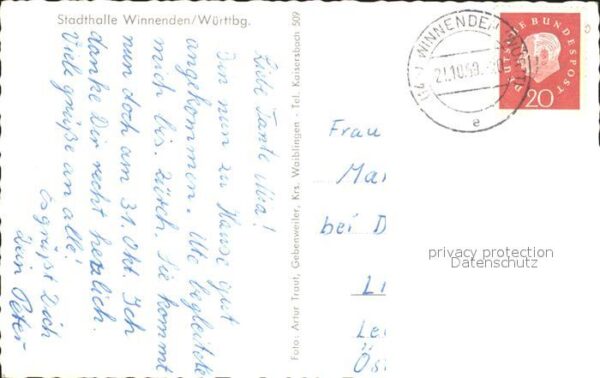 Stadthalle Winnenden/Württbg.
Liebe Tante Mia!
Bin nun zu Hause gut
angekommen. Ute begleitete
mich bis Zürich. Sie kommt
nun doch am 31. Okt. Ich
danke Dir recht herzlich.
Viele Grüße an alle!
Es grüßt Dich
Dein Peter
Foto: Artur Traut, Gebenweiler, Krs. Waiblingen - Tel. Kaisersbach 509
WINNENDEN
21.10.59
e
DEUTSCHE BUNDESPOST
20
Frau
Mar
bei D
Li
Le
Öst
privacy protection
Datenschutz